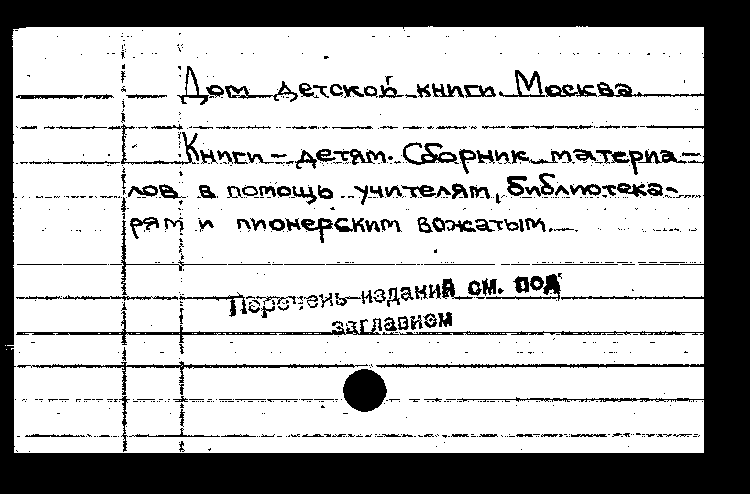 Дом детской книги. Москва.
Книги – детям. Сборник материа–
лов в помощь учителям, библиотека–
рям и пионерским вожатым.
Перечень изданий см. под
заглавием